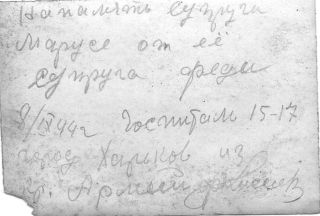 На память супруга
Марусе от её
супруга Феди
8/IX 44 г Госпиталь 15-17
город Харьков из